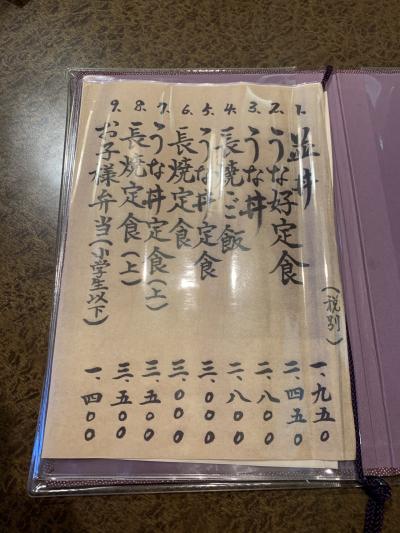 1. 並丼 一、九五〇
2. うな好定食 二、四五〇
3. うな丼 二、八〇〇
4. 長焼ご飯 二、八〇〇
5. うな丼定食 三、〇〇〇
6. 長焼定食 三、〇〇〇
7. うな丼定食(上) 三、五〇〇
8. 長焼定食(上) 三、五〇〇
9. お子様弁当(小学生以下) 一、四〇〇
(税別)